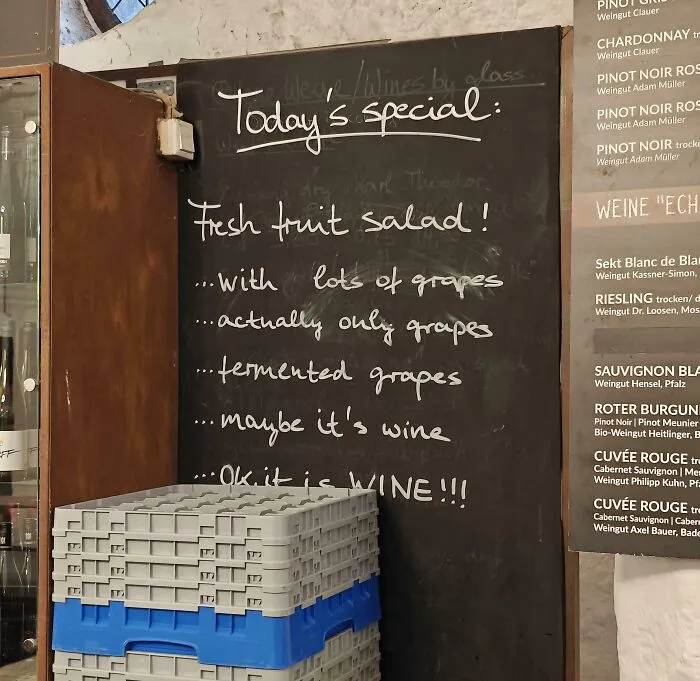 Wines by glass
Today's special:
Fresh fruit salad!
...with lots of grapes
...actually only grapes
...fermented grapes
...maybe it's wine
...OK, it is WINE!!!
PINOT GRIS
Weingut Clauer
CHARDONNAY
Weingut Clauer
PINOT NOIR ROS
Weingut Adam Müller
PINOT NOIR ROS
Weingut Adam Müller
PINOT NOIR trocke
Weingut Adam Müller
WEINE "ECH
Sekt Blanc de Blan
Weingut Kassner-Simon,
RIESLING trocken/ d
Weingut Dr. Loosen, Mos
SAUVIGNON BLA
Weingut Hensel, Pfalz
ROTER BURGUN
Pinot Noir | Pinot Meunier
Bio-Weingut Heitlinger, B
CUVÉE ROUGE tro
Cabernet Sauvignon | Mer
Weingut Philipp Kuhn, Pf
CUVÉE ROUGE tro
Cabernet Sauvignon | Caber
Weingut Axel Bauer, Bade